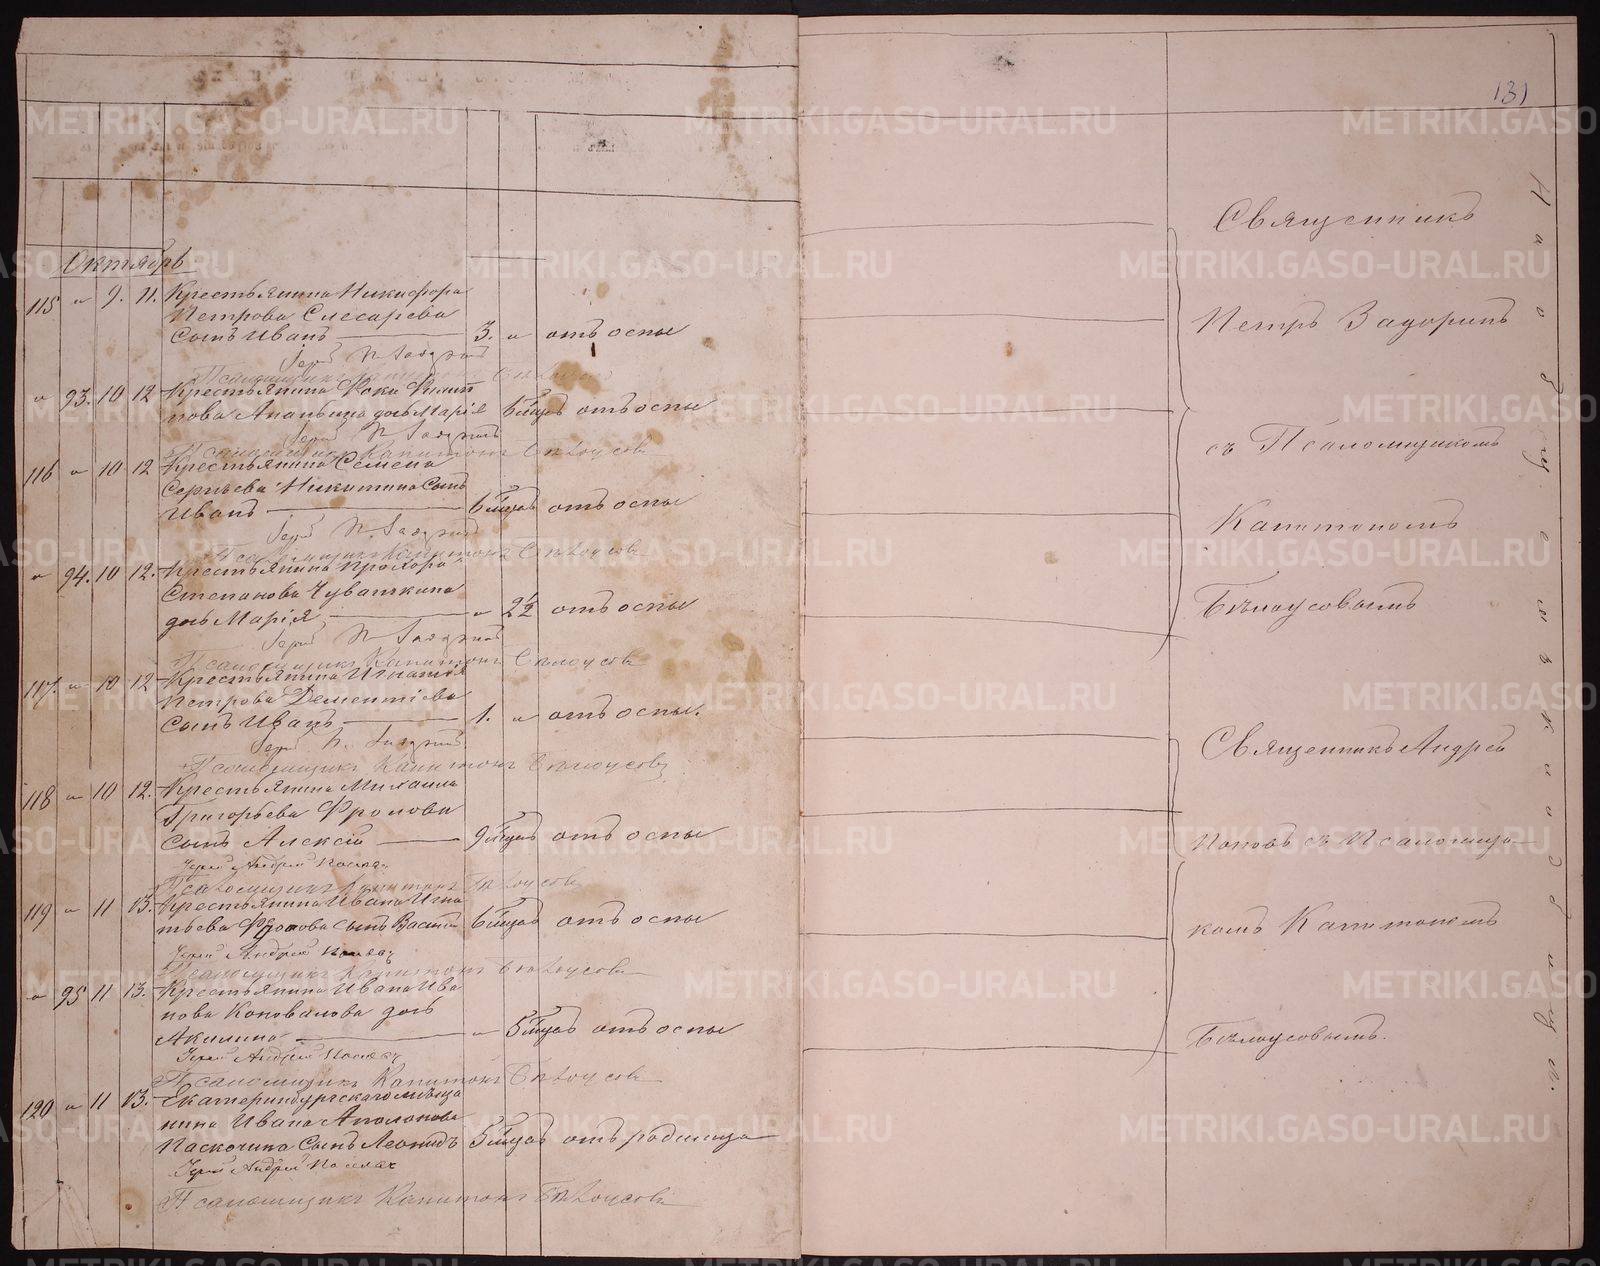 131
Октябрь
115 " 9. 11. Крестьянина Никифора
Петрова Слесарева
сынъ Иванъ 3. " отъ оспы
Іерей П. Задоринъ
Псаломщикъ Капитонъ Бѣлоусовъ
" 93. 10 12 Крестьянина Фоки Филип
пова Ананьина дочь Марія 6 мѣсяцъ отъ оспы
Іерей П. Задоринъ
Псаломщикъ Капитонъ Бѣлоусовъ
116 " 10 12 Крестьянина Семена
Сергѣева Никитина сынъ
Иванъ 6 мѣсяцъ отъ оспы
Іерей П. Задоринъ
Псаломщикъ Капитонъ Бѣлоусовъ
" 94. 10 12. Крестьянина Прохора
Степанова Чувашкина
дочь Марія " 2½ отъ оспы
Іерей П. Задоринъ
Псаломщикъ Капитонъ Бѣлоусовъ
117. " 10 12 Крестьянина Игнатія
Петрова Дементіева
сынъ Иванъ 1. " отъ оспы.
Іерей П. Задоринъ
Псаломщикъ Капитонъ Бѣлоусовъ
118 " 10 12. Крестьянина Михаила
Григорьева Фролова
сынъ Алексій 9 мѣсяцъ отъ оспы
Іерей Андрей Поповъ
Псаломщикъ Капитонъ Бѣлоусовъ
119 " 11 13. Крестьянина Ивана Игна
тьева Фролова сынъ Василій 6 мѣсяцъ отъ оспы
Іерей Андрей Поповъ
Псаломщикъ Капитонъ Бѣлоусовъ
" 95 11 13. Крестьянина Ивана Ива
нова Коновалова дочь
Акилина " 5 мѣсяцъ отъ оспы
Іерей Андрей Поповъ
Псаломщикъ Капитонъ Бѣлоусовъ
120 " 11 13. Екатеринбургскаго мѣща
нина Ивана Аполонова
Паскочина сынъ Леонидъ 5 мѣсяцъ отъ родимца
Іерей Андрей Поповъ
Псаломщикъ Капитонъ Бѣлоусовъ
Священникъ
Петръ Задоринъ
съ Псаломщикомъ
Капитономъ
Бѣлоусовымъ
Священникъ Андрей
Поповъ съ Псаломщи-
комъ Капитономъ
Бѣлоусовымъ.
На
METRIKI.GASO-URAL.RU